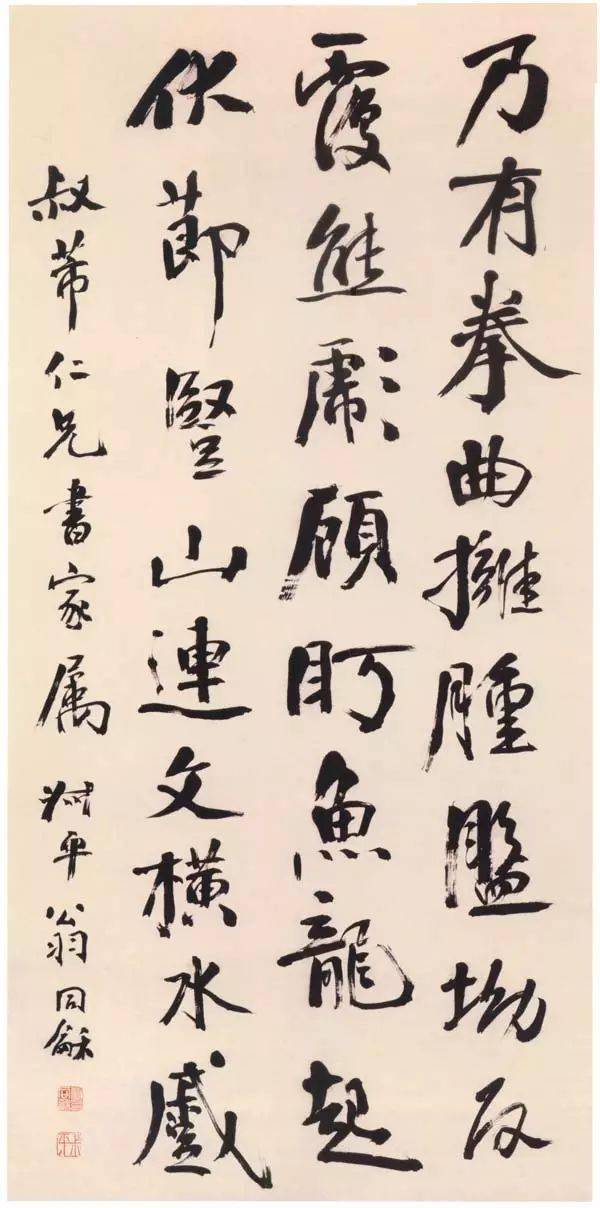 乃有拳曲擁腫盤坳反
覆熊彪顧盼魚龍起
伏節豎山連文横水蹙
叔芾仁兄書家属 叔平翁同龢